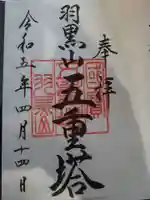 奉拝
羽黒山五重塔
令和五年四月十四日